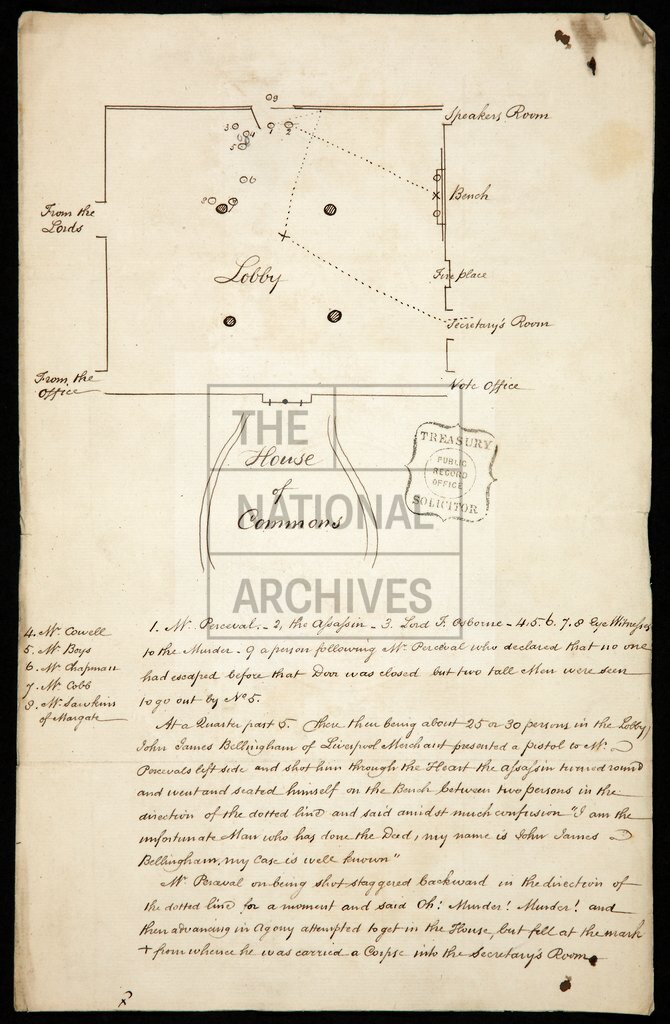 9
3
4
5
1
2
6
8
7
Speakers Room
Bench
From the
Lords
Lobby
Fire place
Secretary's Room
From the
Office
Note Office
House
of
Commons
THE
NATIONAL
ARCHIVES
TREASURY
PUBLIC
RECORD
OFFICE
SOLICITOR
4. Mr Cowell
5. Mr Boys
6. Mr Chapman
7. Mr Cobb
8. Mr Sawkins
of Margate
1. Mr Perceval. - 2, the Assassin - 3. Lord F. Osborne - 4.5.6.7.8 Eye Witnesses
to the Murder - 9 a person following Mr Perceval who declared that no one
had escaped before that Door was closed but two tall Men were seen
to go out by No 5.
At a Quarter past 5. There then being about 25 or 30 persons in the Lobby,
John James Bellingham of Liverpool Merchant presented a pistol to Mr
Percevals left side and shot him through the Heart the assassin turned round
and went and seated himself on the Bench between two persons in the
direction of the dotted line and said amidst much confusion "I am the
unfortunate Man who has done the Deed, my name is John James
Bellingham, my Case is well known"
Mr Perceval on being shot staggered backward in the direction of
the dotted line for a moment and said Oh! Murder! Murder! and
then advancing in Agony attempted to get in the House, but fell at the mark
+ from whence he was carried a Corpse into the Secretary's Room